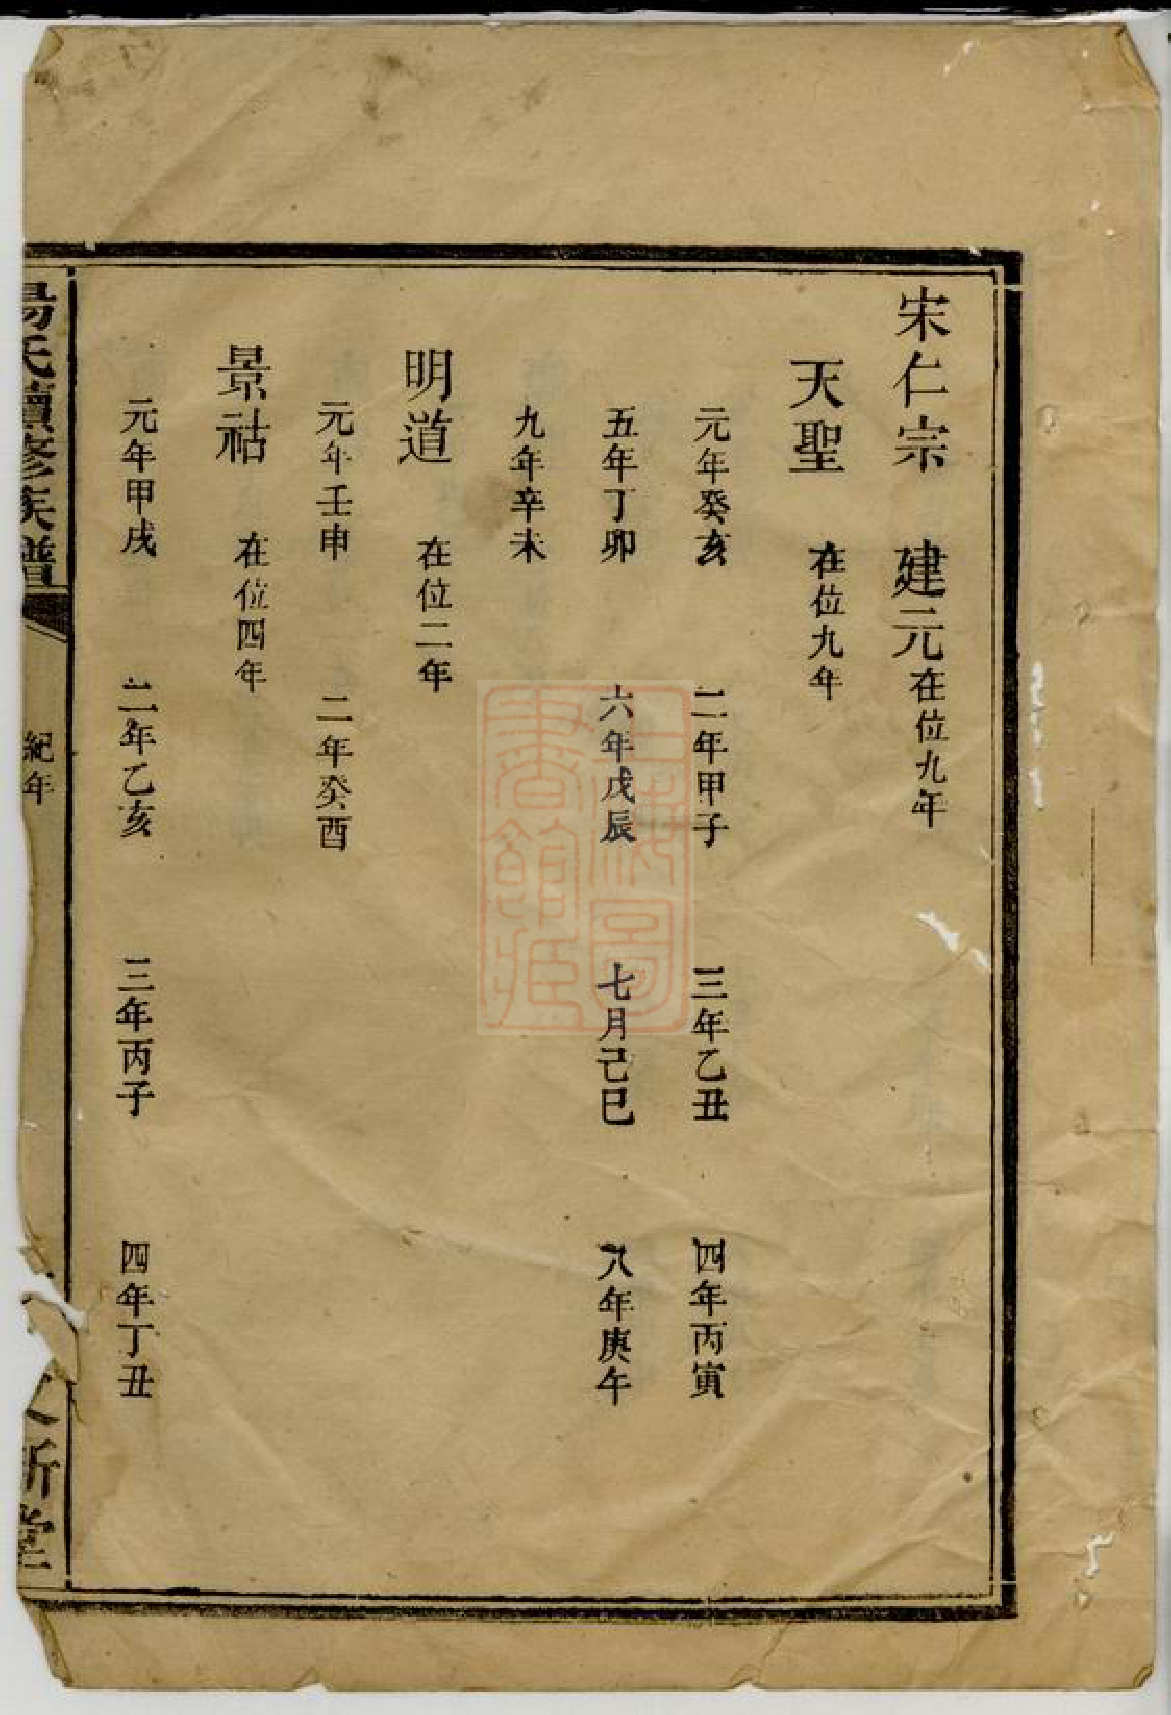 宋仁宗 建元在位九年
天聖 在位九年
元年癸亥 二年甲子 三年乙丑 四年丙寅
五年丁卯 六年戊辰 七月己巳 八年庚午
九年辛未
明道 在位二年
元年壬申 二年癸酉
景祜 在位四年
元年甲戌 二年乙亥 三年丙子 四年丁丑
氏續修族譜
紀年
新堂
上海圖
書館藏